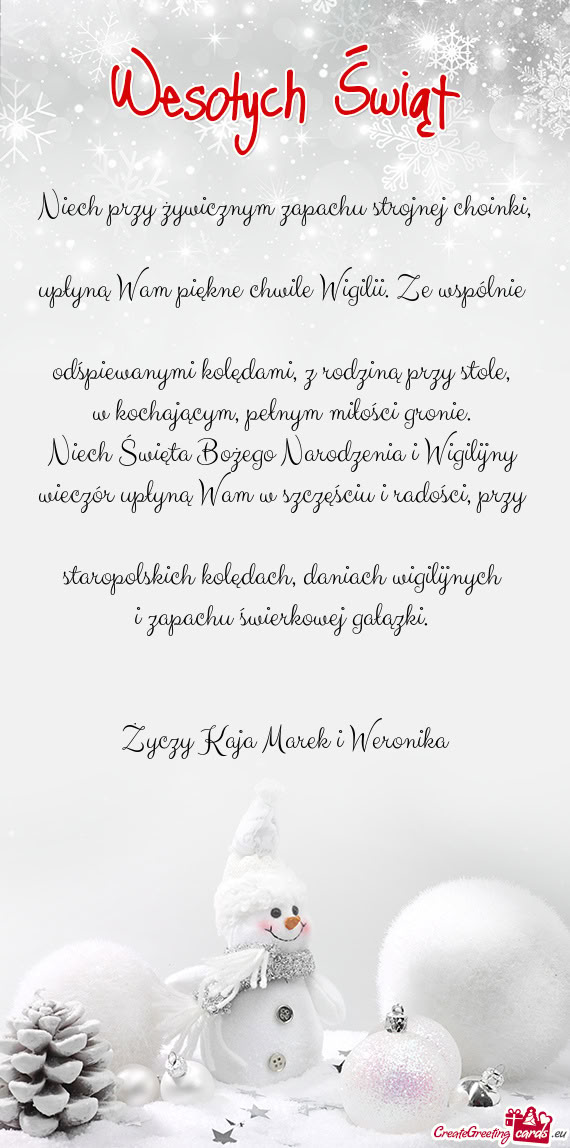 Wesołych Świąt
Niech przy żywicznym zapachu strojnej choinki,
upłyną Wam piękne chwile Wigilii. Ze wspólnie
odśpiewanymi kolędami, z rodziną przy stole,
w kochającym, pełnym miłości gronie.
Niech Święta Bożego Narodzenia i Wigilijny
wieczór upłyną Wam w szczęściu i radości, przy
staropolskich kolędach, daniach wigilijnych
i zapachu świerkowej gałązki.
Życzy Kaja Marek i Weronika
CreateGreeting cards .eu